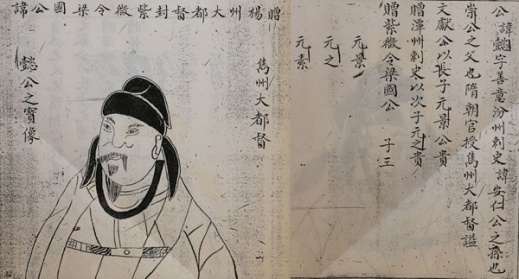 公諱懿字善意汾州刺史諱安仁公之孫也
崇公之父也隋朝官授雟州大都督謚
文獻公以長子元景公貴
贈潭州刺史以次子元之貴
贈紫微令梁國公 子三
元景
元之
元素
贈楊州大都督封紫微令梁國公諱
雟州大都督
懿公之寶像